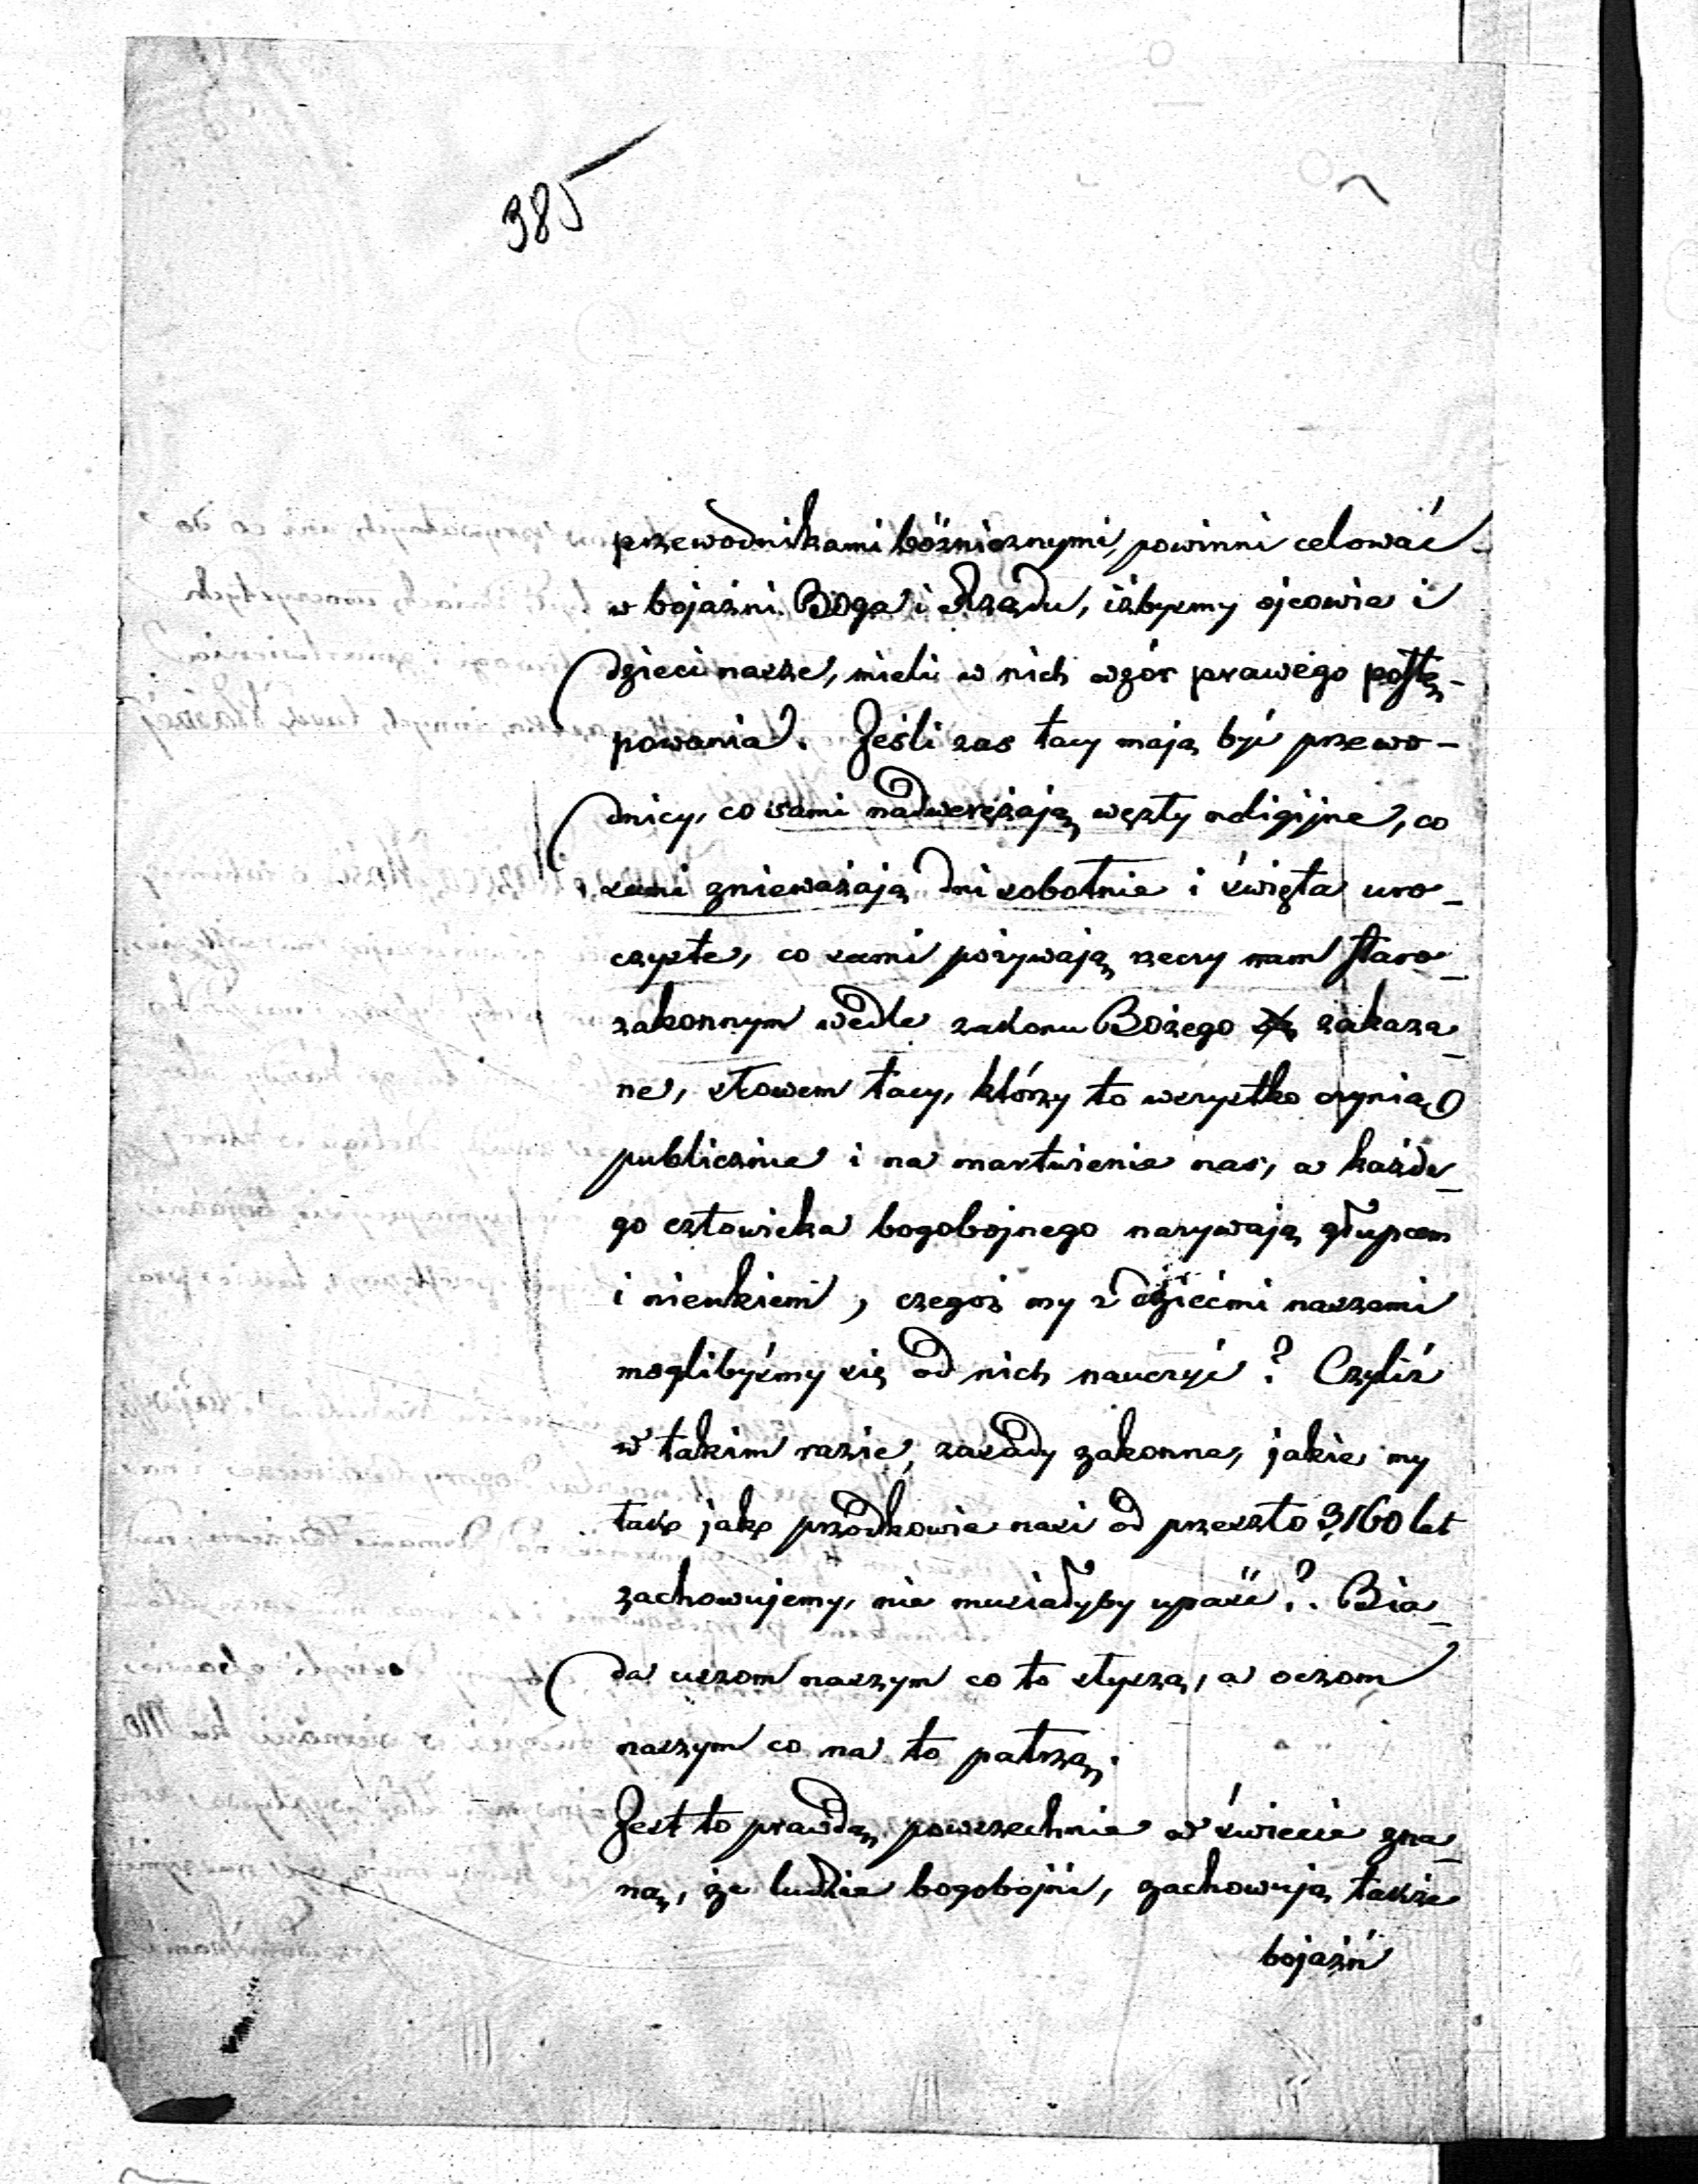 385
przewodnikami bóżnicznymi, powinni celować
w bojaźni Boga i Rządu, iżbyśmy ojcowie i
dzieci nasze, mieli w nich wzór prawego postę-
powania. Jeśli zas tacy mają być przewo-
dnicy, co sami nadwerężają węzły religijne, co
sami znieważają dni sobotnie i święta uro-
czyste, co sami pożywają rzeczy nam staro-
zakonnym wedle zakonu Bożego zakaza-
ne, słowem tacy, którzy to wszystko czynią
publicznie i na martwienie nas, a każde-
go człowieka bogobojnego nazywają głupcem
i nieukiem, czegoż my z dziećmi naszemi
moglibyśmy się od nich nauczyć? Czyliż
w takim razie, zasady zakonne, jakie my
tak jak przodkowie nasi od przeszło 3,160 let
zachowujemy, nie musiałyby upaść?. Bia-
da uszom naszym co to słyszą, a oczom
naszym co na to patrzą.
Jest to prawdą powszechnie w świecie zna-
ną, że ludzie bogobojni, zachowują także
bojaźń